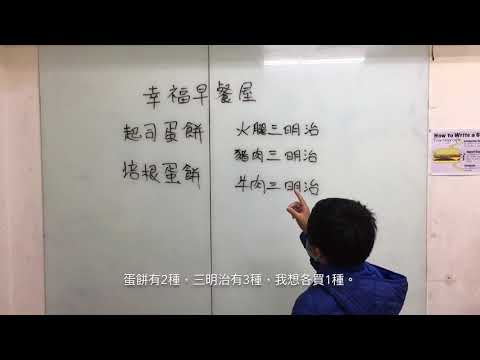 幸福早餐屋
起司蛋餅
火腿三明治
豬肉三明治
培根蛋餅
牛肉三明治
How to Write a
蛋餅有2種，三明治有3種，我想各買1種。